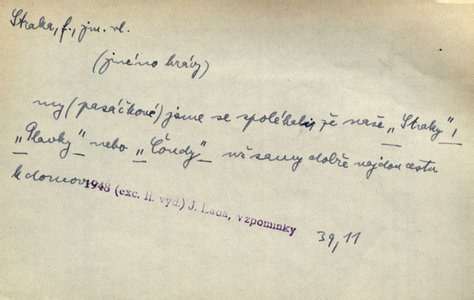 Straka, f., jm. vl.
(jméno krávy)
my (pasáčkové) jsme se spoléhali, že naše „Straky",
„Plavky" nebo „Čondy" už samy dobře najdou cestu
k domovu
1948 (exc. II. vyd.) J. Lada, Vzpomínky
39, 11